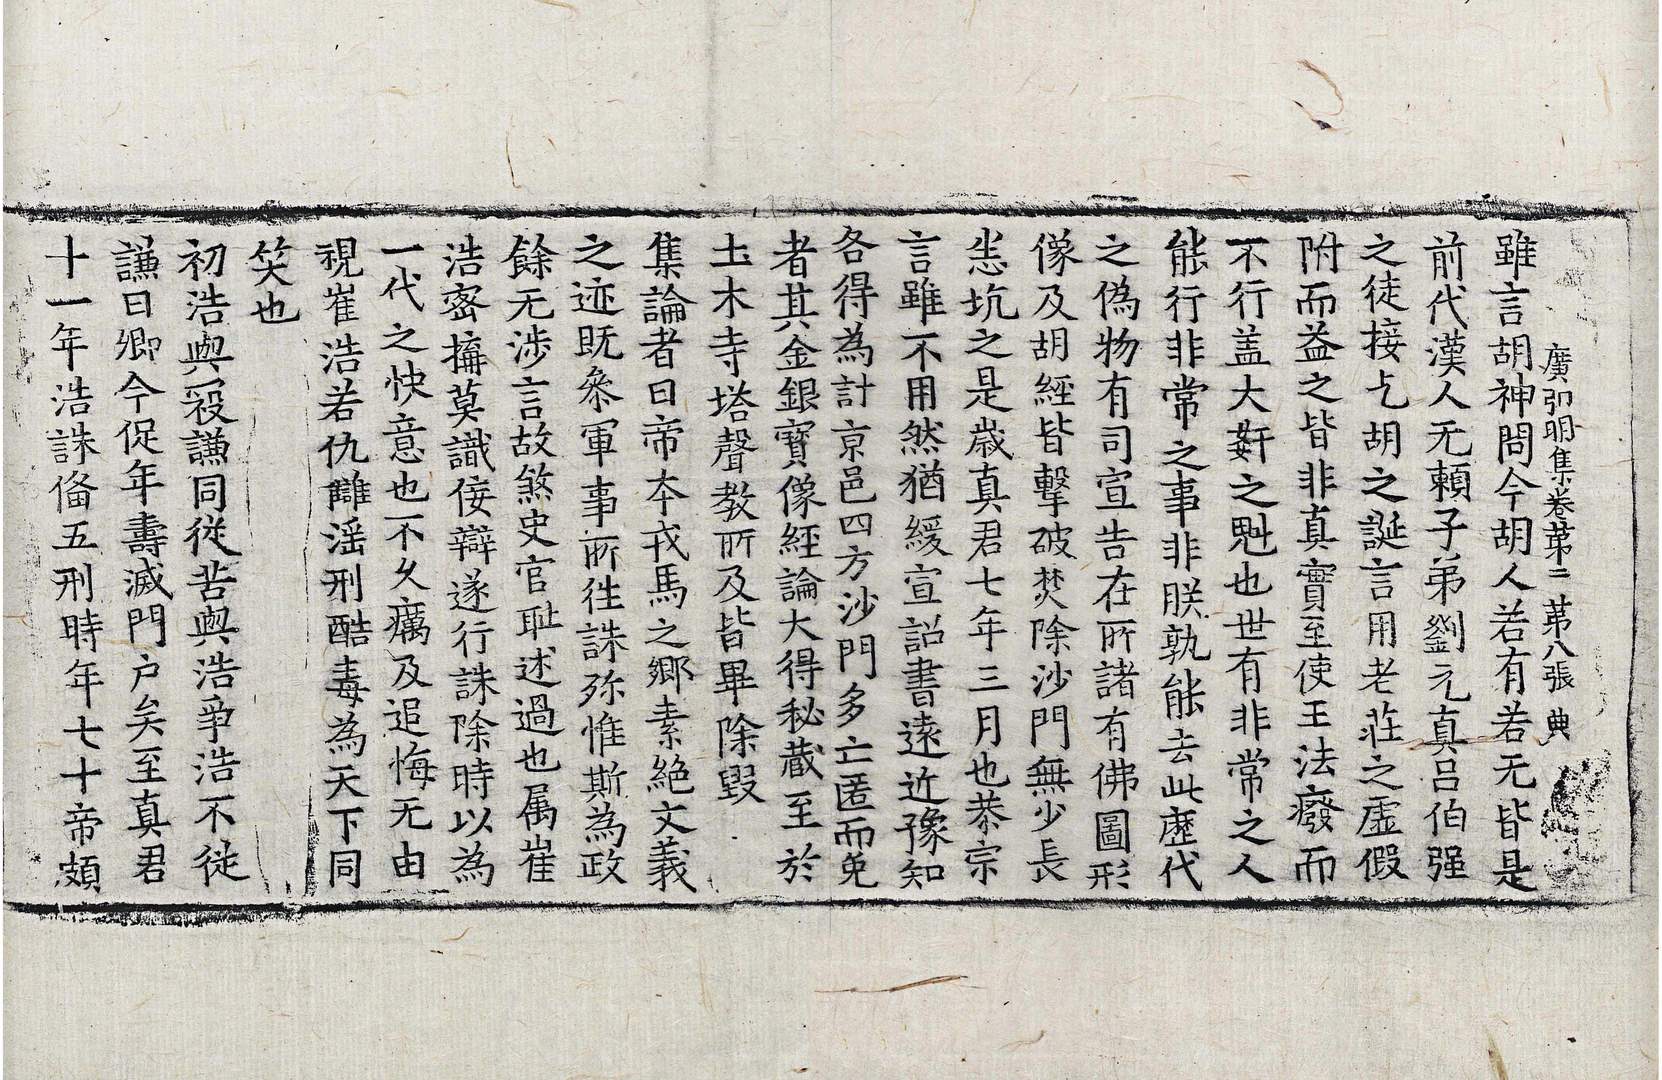 廣弘明集卷第二 第八張 典
雖言胡神問今胡人若有若无皆是
前代漢人无賴子弟劉元真吕伯强
之徒接乞胡之誕言用老莊之虛假
附而益之皆非真實至使王法癈而
不行盖大姧之魁也世有非常之人
能行非常之事非朕孰能去此歷代
之偽物有司宣告在所諸有佛圖形
像及胡經皆擊破焚除沙門無少長
悉坑之是歲真君七年三月也恭宗
言雖不用然猶緩宣詔書遠近豫知
各得為計京邑四方沙門多亡匿而免
者其金銀寶像經論大得秘藏至於
土木寺塔聲教所及皆畢除毀
集論者曰帝本戎馬之鄉素絕文義
之迹既叅軍事所往誅殄惟斯為政
餘无涉言故煞史官耻述過也属崔
浩密搆莫識侫辯遂行誅除時以為
一代之快意也不久癘及追悔无由
視崔浩若仇讎滛刑酷毒為天下同
笑也
初浩與㓂謙同從苦與浩爭浩不從
謙曰卿今促年壽滅門户矣至真君
十一年浩誅俻五刑時年七十帝頗